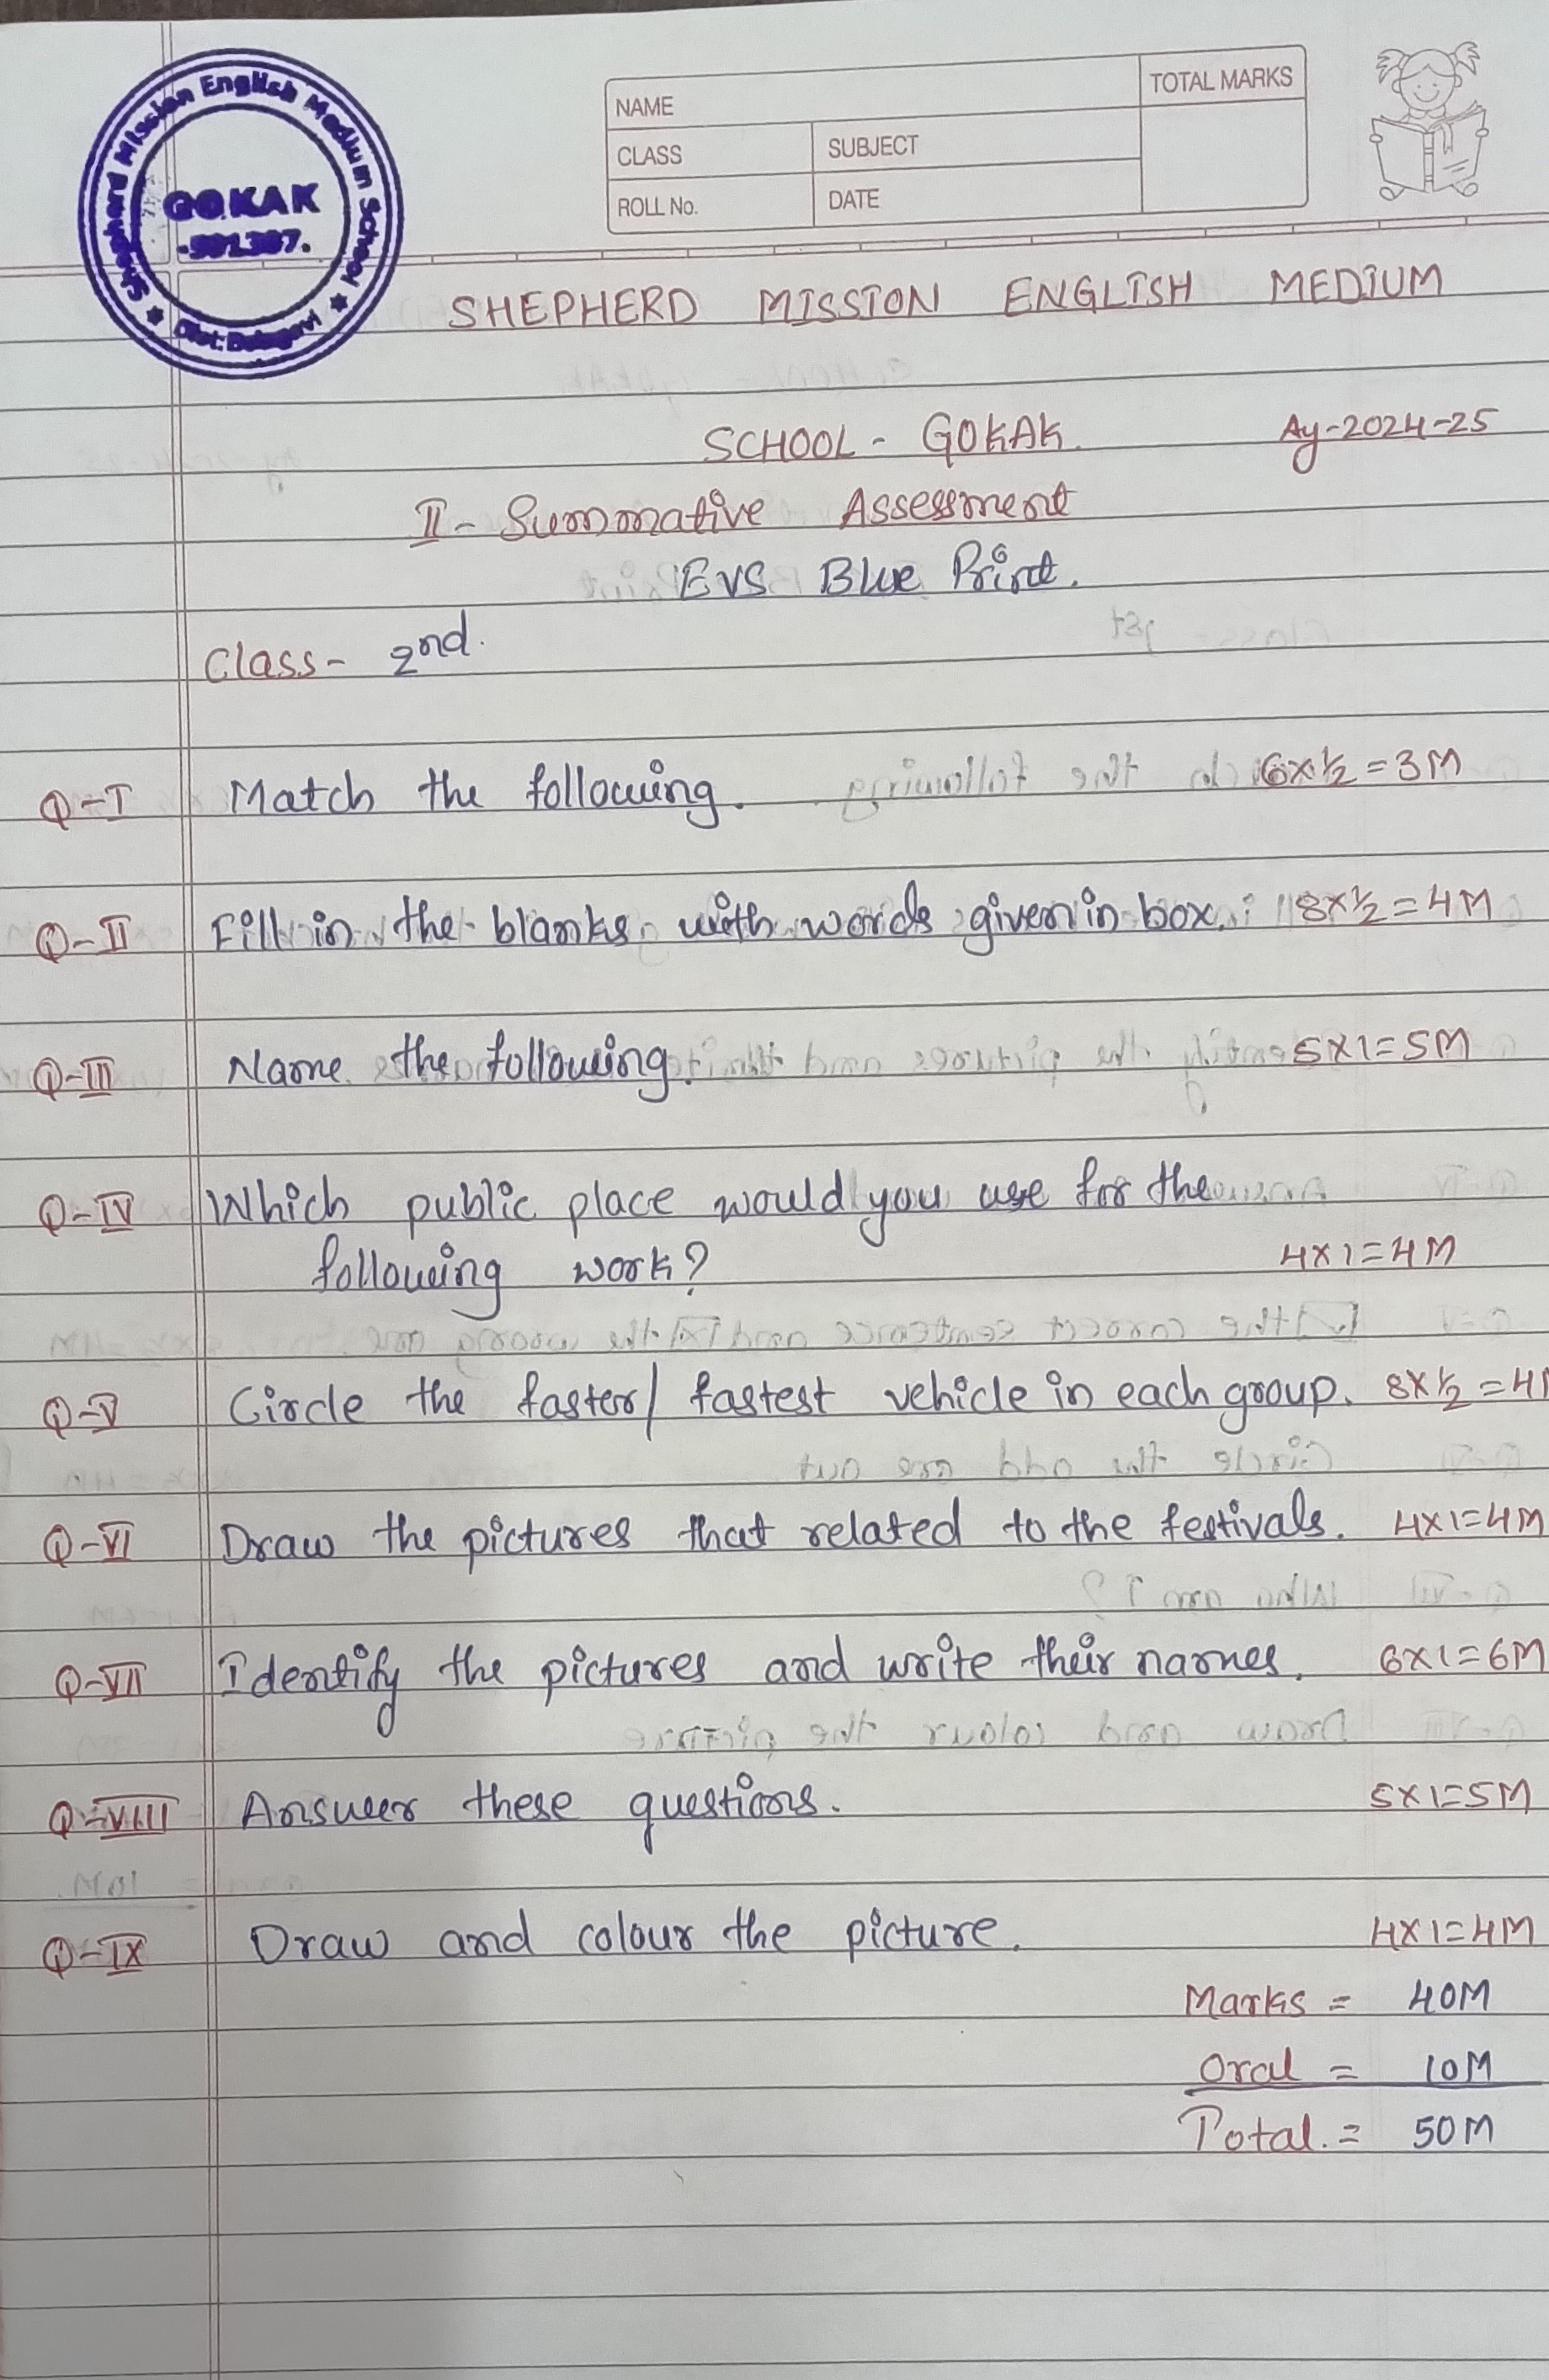 Shepherd Mission English Medium School
GOKAK
Dist: Belagavi
NAME
TOTAL MARKS
CLASS
SUBJECT
ROLL No.
DATE
SHEPHERD MISSION ENGLISH MEDIUM
SCHOOL - GOKAK. Ay-2024-25
II - Summative Assessment
EVS Blue Print.
Class- 2nd.
Q-I Match the following. 6x½=3M
Q-II Fill in the blanks with words given in box. 8x½=4M
Q-III Name the following. 5x1=5M
Q-IV Which public place would you use for the
following work? 4x1=4M
Q-V Circle the faster/ fastest vehicle in each group. 8x½=4M
Q-VI Draw the pictures that related to the festivals. 4x1=4M
Q-VII Identify the pictures and write their names. 6x1=6M
Q-VIII Answer these questions. 5x1=5M
Q-IX Draw and colour the picture. 4x1=4M
Marks = 40M
Oral = 10M
Total. = 50M